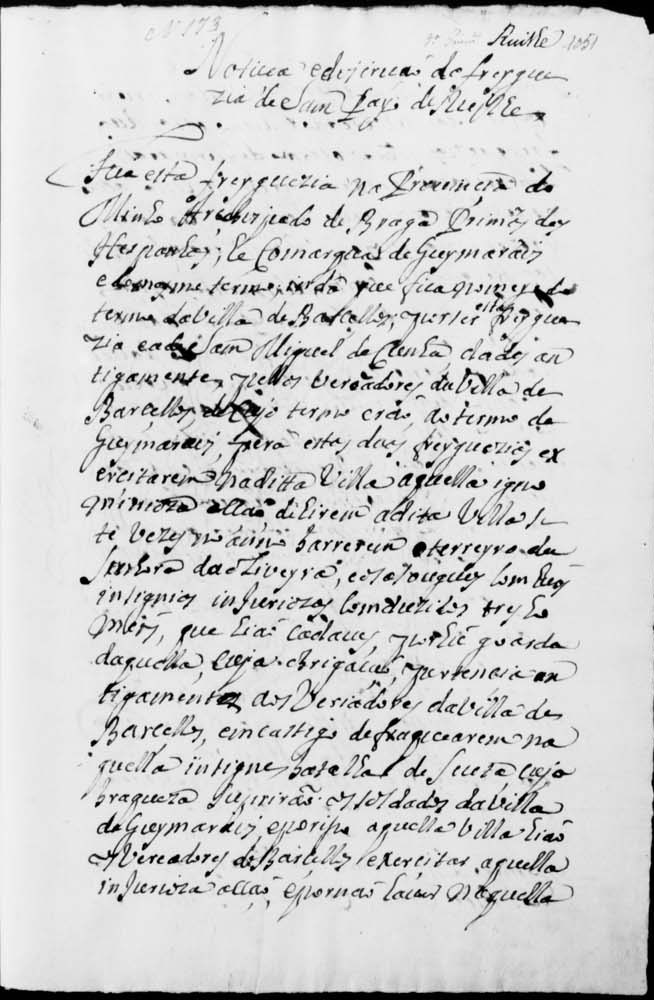 Nº 173
Ruilhe 1051
Noticia e descricaõ da freygue
zia de Sam Payo de Ruilhe
Fica esta freyguezia na Provincia do
Minho Arcebispado de Braga Primás das
Hespanhas; he Comarqua de Guymarais
e do mesmo termo, inda que fica no meyo do
termo da Villa de Barcellos, por ser esta freygue
zia e a de Sam Miguel da Cunha dadas an
tigamente, pellos Vereadores da Villa de
Barcellos, de cujo termo eraõ, ao termo de
Guymarais, pera estas duas freyguezias ex
ercitarem na ditta Villa aquella igno
minioza acçaõ de hirem a dita Villa se
te vezes no anno barrerem o terreyro da
Senhora da oLiveyra, e os asougues com huas
insignias injuriozas comduzidos tres ho
mens, que hiaõ cada vez, por hũ guarda
daquella, cuja obrigaçaõ, pertencia an
tigamente aos Vereadores da Villa de
Barcellos, em castigo de fraquearem na
quella insigne batalha de Seuta cuja
fraqueza supriraõ os soldados da Villa
de Guymarais, e por iso aquella Villa hiaõ
os Vereadores de Barcellos exercitar aquella
injurioza acçaõ, e por naõ naquella